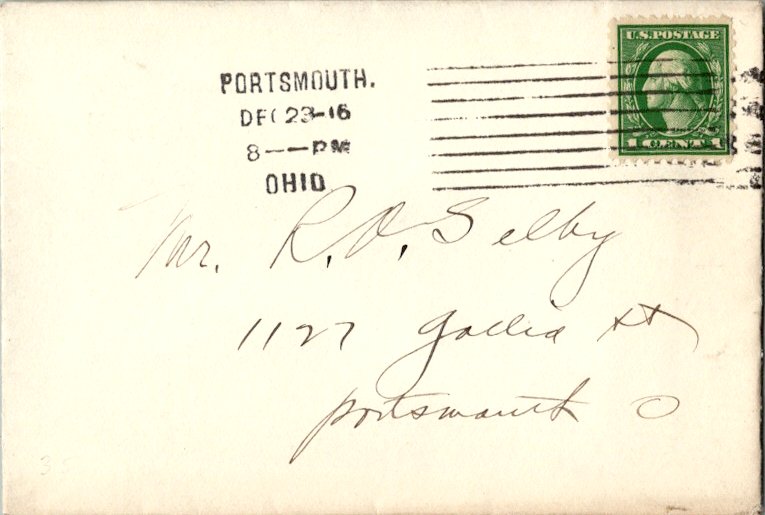 U.S. POSTAGE
1 CENT 1
PORTSMOUTH.
DEC 23-16
8——PM
OHIO
Mr. R. D. Selby
1127 Gallia St
Portsmouth O